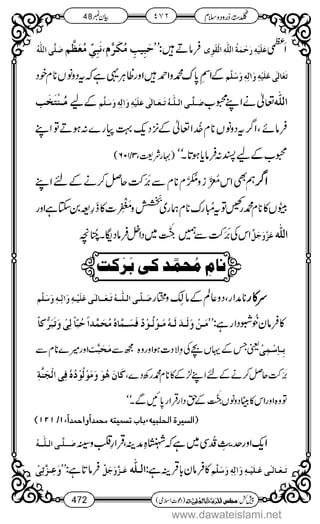 گلدستۂ درود و سلام ٤٧٢ بیان نمبر 48
اعظمی عَلَیْہِ رَحْمَۃُ اللہِ الْقَوِی فرماتے ہیں: ’’حبیبِ مُکَرَّم، نبیِ مُعَظَّم صَلَّی اللہُ
تَعَالٰی عَلَیْہِ وَاٰلِہٖ وَسَلَّم کے اسمِ پاک محمد واحمد ہیں اور ظاہر یہی ہے کہ یہ دونوں نام خود
اللہ تعالیٰ نے اپنے محبوب صَلَّی اللہُ تَعَالٰی عَلَیْہِ وَاٰلِہٖ وَسَلَّم کے لیے مُنْتَخَب
فرمائے، اگر یہ دونوں نام خدا تعالیٰ کے نزدیک بہت پیارے نہ ہوتے تو اپنے
محبوب کے لیے پسند نہ فرمایا ہوتا۔‘‘ (بہار شریعت، ٣/٦٠١)
اگر ہم بھی اس معزز و مکرم نام سے برکت حاصل کرنے کے لئے اپنے
بیٹوں کا نام محمد رکھیں تو یہی مبارک نام ہماری بخشش و مغفرت کا ذریعہ بن سکتا ہے اور
اللہ عَزَّوَجَلَّ اس کی برکت سے ہمیں جنت میں داخل فرمادے گا۔ چنانچہ
نامِ محمد کی برکت
سرکارِ نامدار، دو عالم کے مالک و مختار صَلَّی اللہُ تَعَالٰی عَلَیْہِ وَاٰلِہٖ وَسَلَّم
کا فرمانِ خوشبودار ہے: ’’مَنْ وُلِدَ لَہٗ مَوْلُوْدٌ فَسَمَّاہُ مُحَمَّدًا حُبًّا لِیْ وَتَبَرُّکًا
بِاِسْمِیْ یعنی جس کے یہاں بچے کی ولادت ہو اور وہ مجھ سے مَحَبَّت اور میرے نام سے
برکت حاصل کرنے کے لئے اپنے لڑکے کا نام محمد رکھ دے، کَانَ ھُوَ وَمَوْلُوْدُہٗ فِی الْجَنَّۃِ
تو وہ اور اس کا بیٹا دونوں جنت کے حق دار قرار پائیں گے۔‘‘
(السیرۃ الحلبیہ، باب تسمیتہ محمدا واحمدا، ١/١٢١)
ایک اور حدیثِ قدسی میں ہے کہ شہنشاہِ مدینہ، قرارِ قلب و سینہ صَلَّی اللہُ
تَعَالٰی عَلَیْہِ وَاٰلِہٖ وَسَلَّم کا فرمانِ باقرینہ ہے: اللہ عَزَّوَجَلَّ فرماتا ہے: ’’وَعِزَّتِیْ
472
www.dawateislami.net